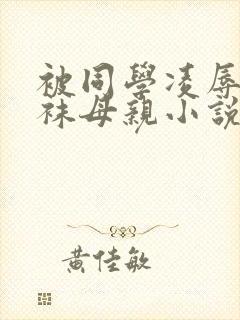 被同學凌辱
袜母親小說
黃佳敏